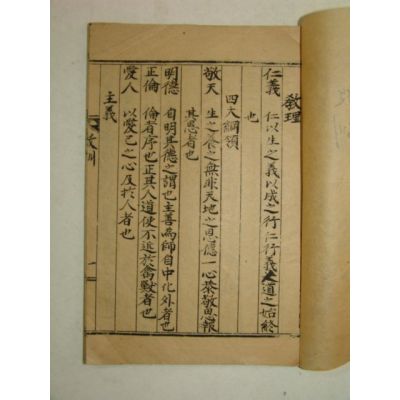 教理
仁義 仁以生之義以成之行仁行義人道之始終
也
四大綱領
敬天 生之養之無非天地之恩應一心恭敬思報
其恩者也
明德 自明其德之謂也主善為師自中化外者也
正倫 倫者序也正其人道使不近於禽獸者也
愛人 以愛己之心及於人者也
主義
教訓
一